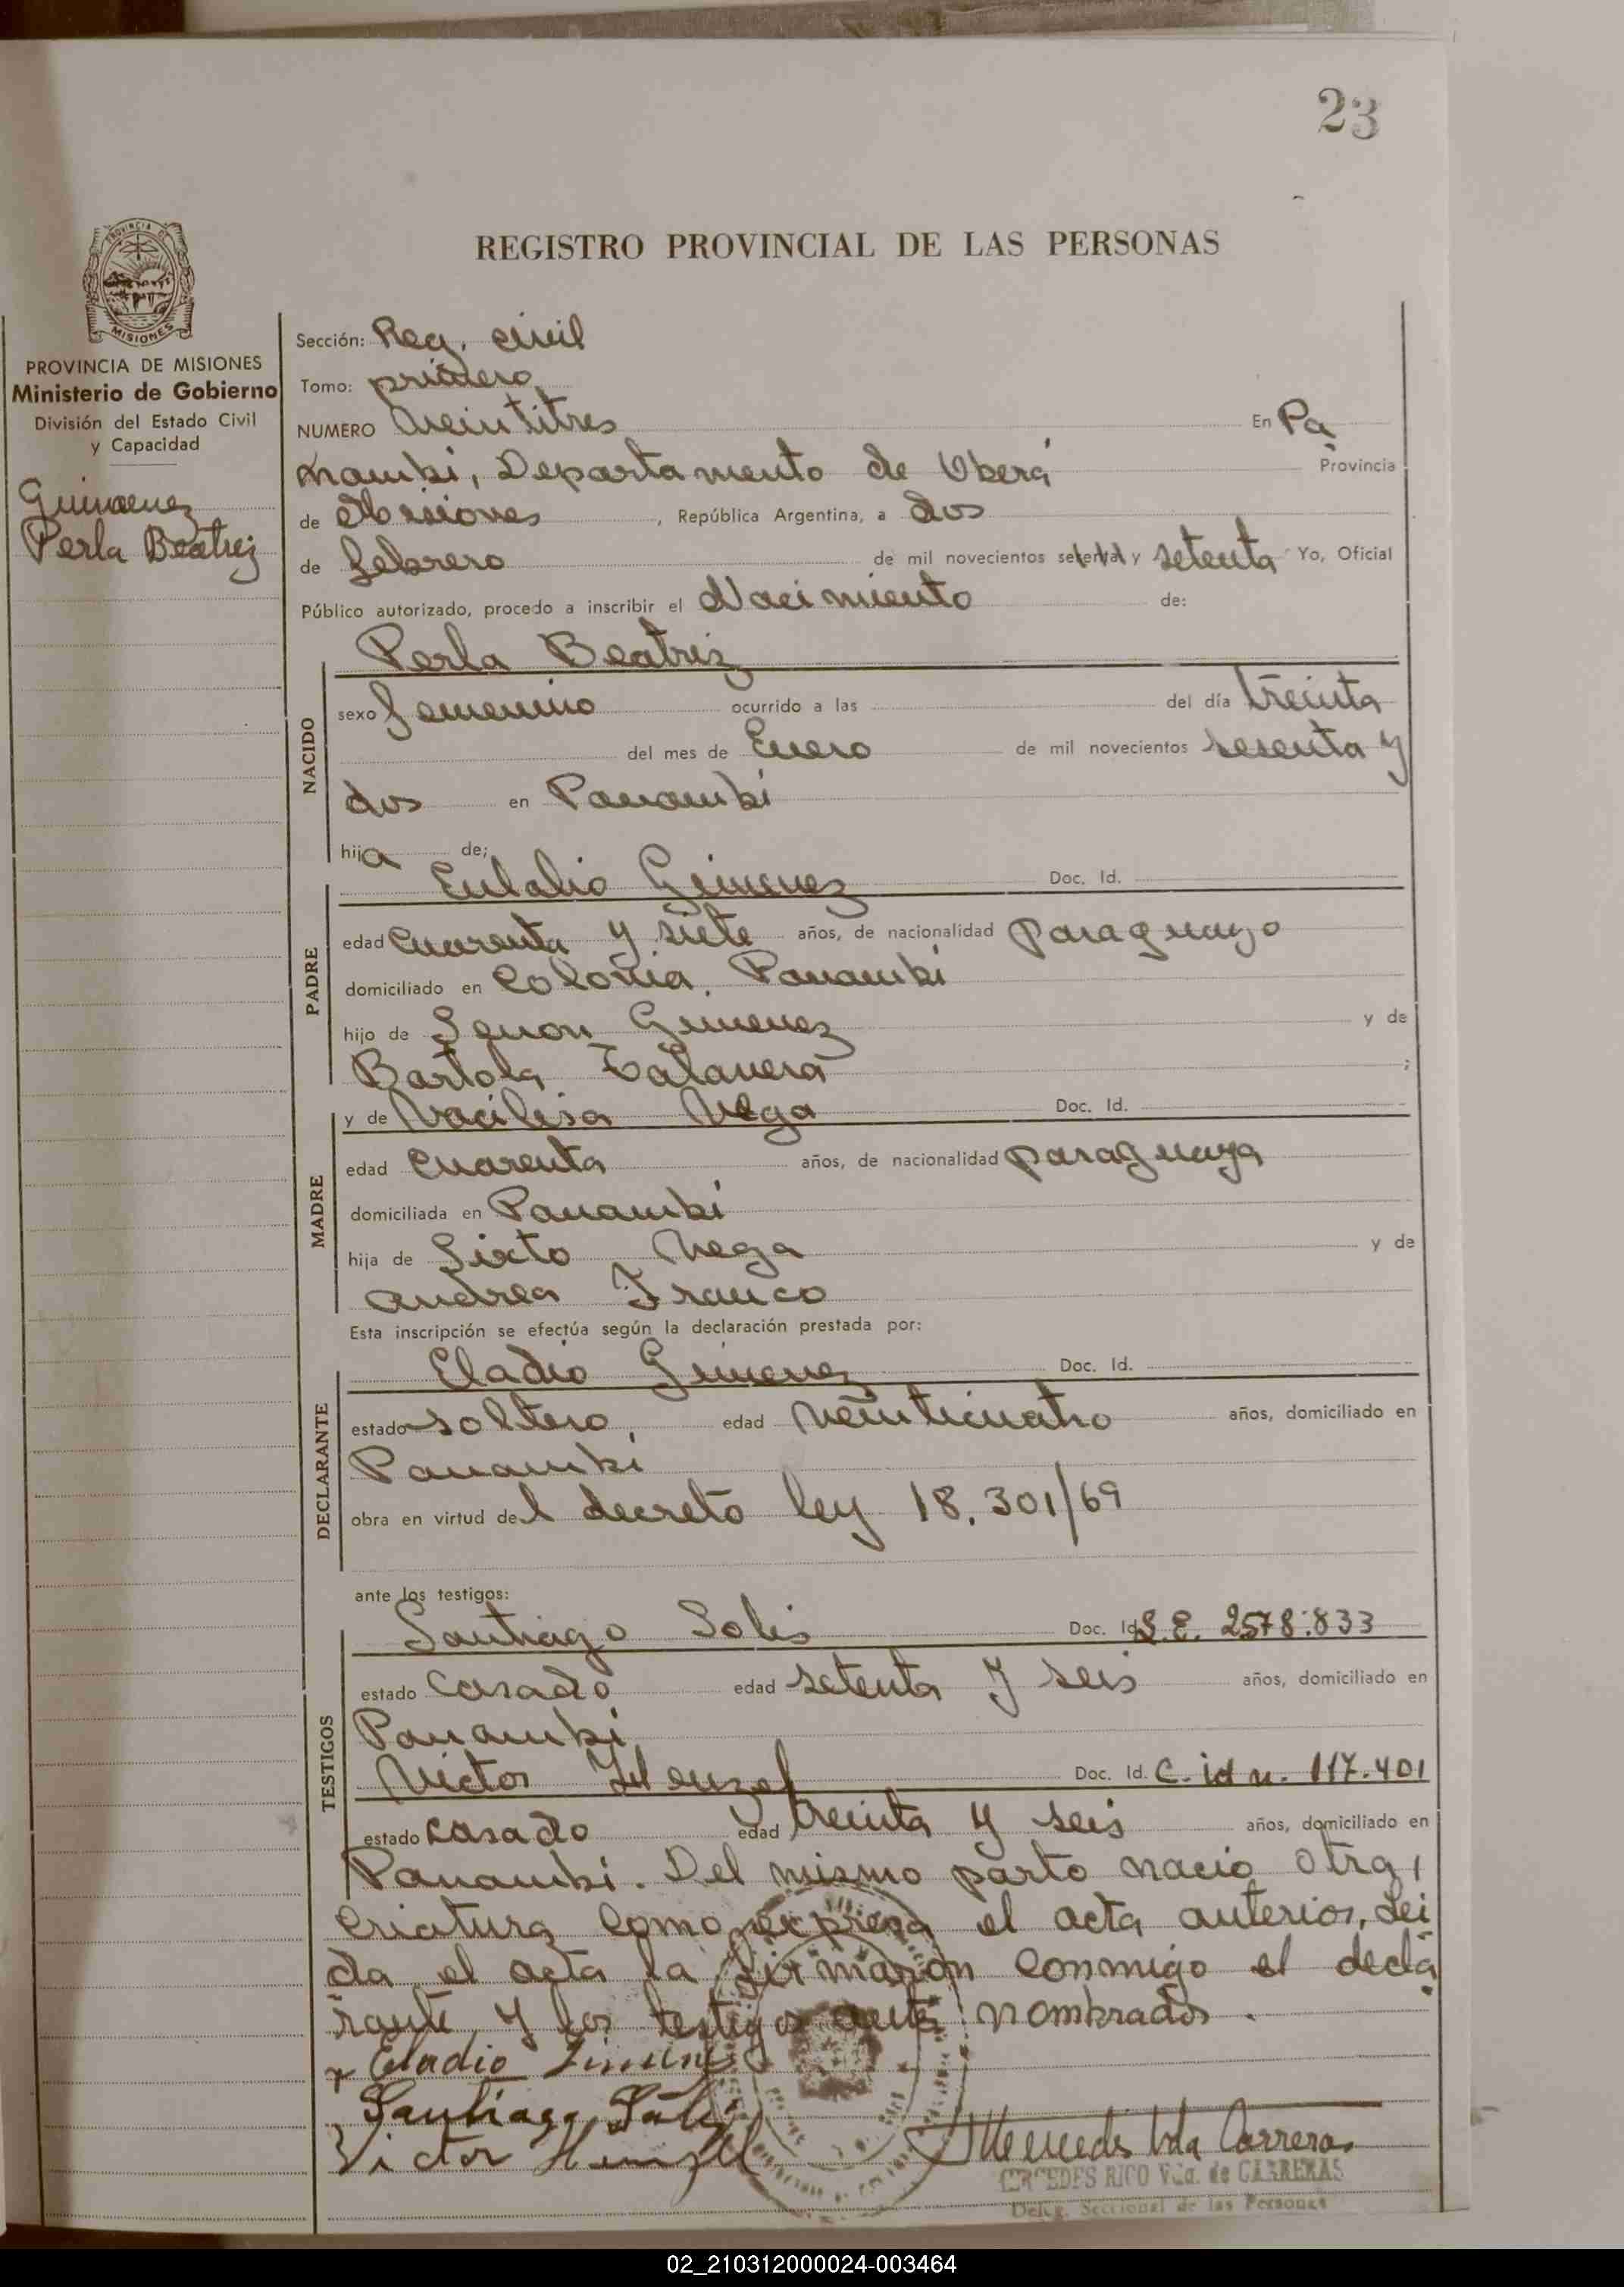 23
REGISTRO PROVINCIAL DE LAS PERSONAS
PROVINCIA DE
MISIONES
PROVINCIA DE MISIONES
Ministerio de Gobierno
División del Estado Civil
y Capacidad
Gimenez
Perla Beatriz
Sección: Reg. civil
Tomo: primero
NUMERO Veintitres En Pa
nambi, Departamento de Oberá Provincia
de Misiones, República Argentina, a dos
de febrero de mil novecientos setenta y setenta Yo, Oficial
Público autorizado, procedo a inscribir el Nacimiento de:
Perla Beatriz
NACIDO
sexo femenino ocurrido a las del día treinta
del mes de Enero de mil novecientos sesenta y
dos en Panambi
hija de;
PADRE
Eulalio Gimenez Doc. Id.
edad cuarenta y siete años, de nacionalidad paraguayo
domiciliado en Colonia Panambi
hijo de Senon Gimenez y de
Bartola Talavera ;
MADRE
y de Vacilisa Vega Doc. Id.
edad cuarenta años, de nacionalidad paraguaya
domiciliada en Panambi
hija de Sixto Vega y de
Andrea Franco
Esta inscripción se efectúa según la declaración prestada por:
DECLARANTE
Eladio Gimenez Doc. Id.
estado soltero, edad veinticuatro años, domiciliado en
Panambi
obra en virtud del decreto ley 18.301/69
ante los testigos:
TESTIGOS
Santiago Solis Doc. Id. 2578.833
estado casado edad setenta y seis años, domiciliado en
Panambi
Victor Henzel Doc. Id. C. id n. 117.401
estado casado edad treinta y seis años, domiciliado en
Panambi. Del mismo parto nacio otra
criatura como expresa el acta anterior, Lei
da el acta la firmaron conmigo el decla
rante y los testigos ante nombrados.
Eladio Jimenez
Santiago Solis
Victor Henzel
Mercedes Vda Carreras
MERCEDES RICO Vda. de CARRERAS
Deleg. Seccional de las Personas
02_210312000024-003464